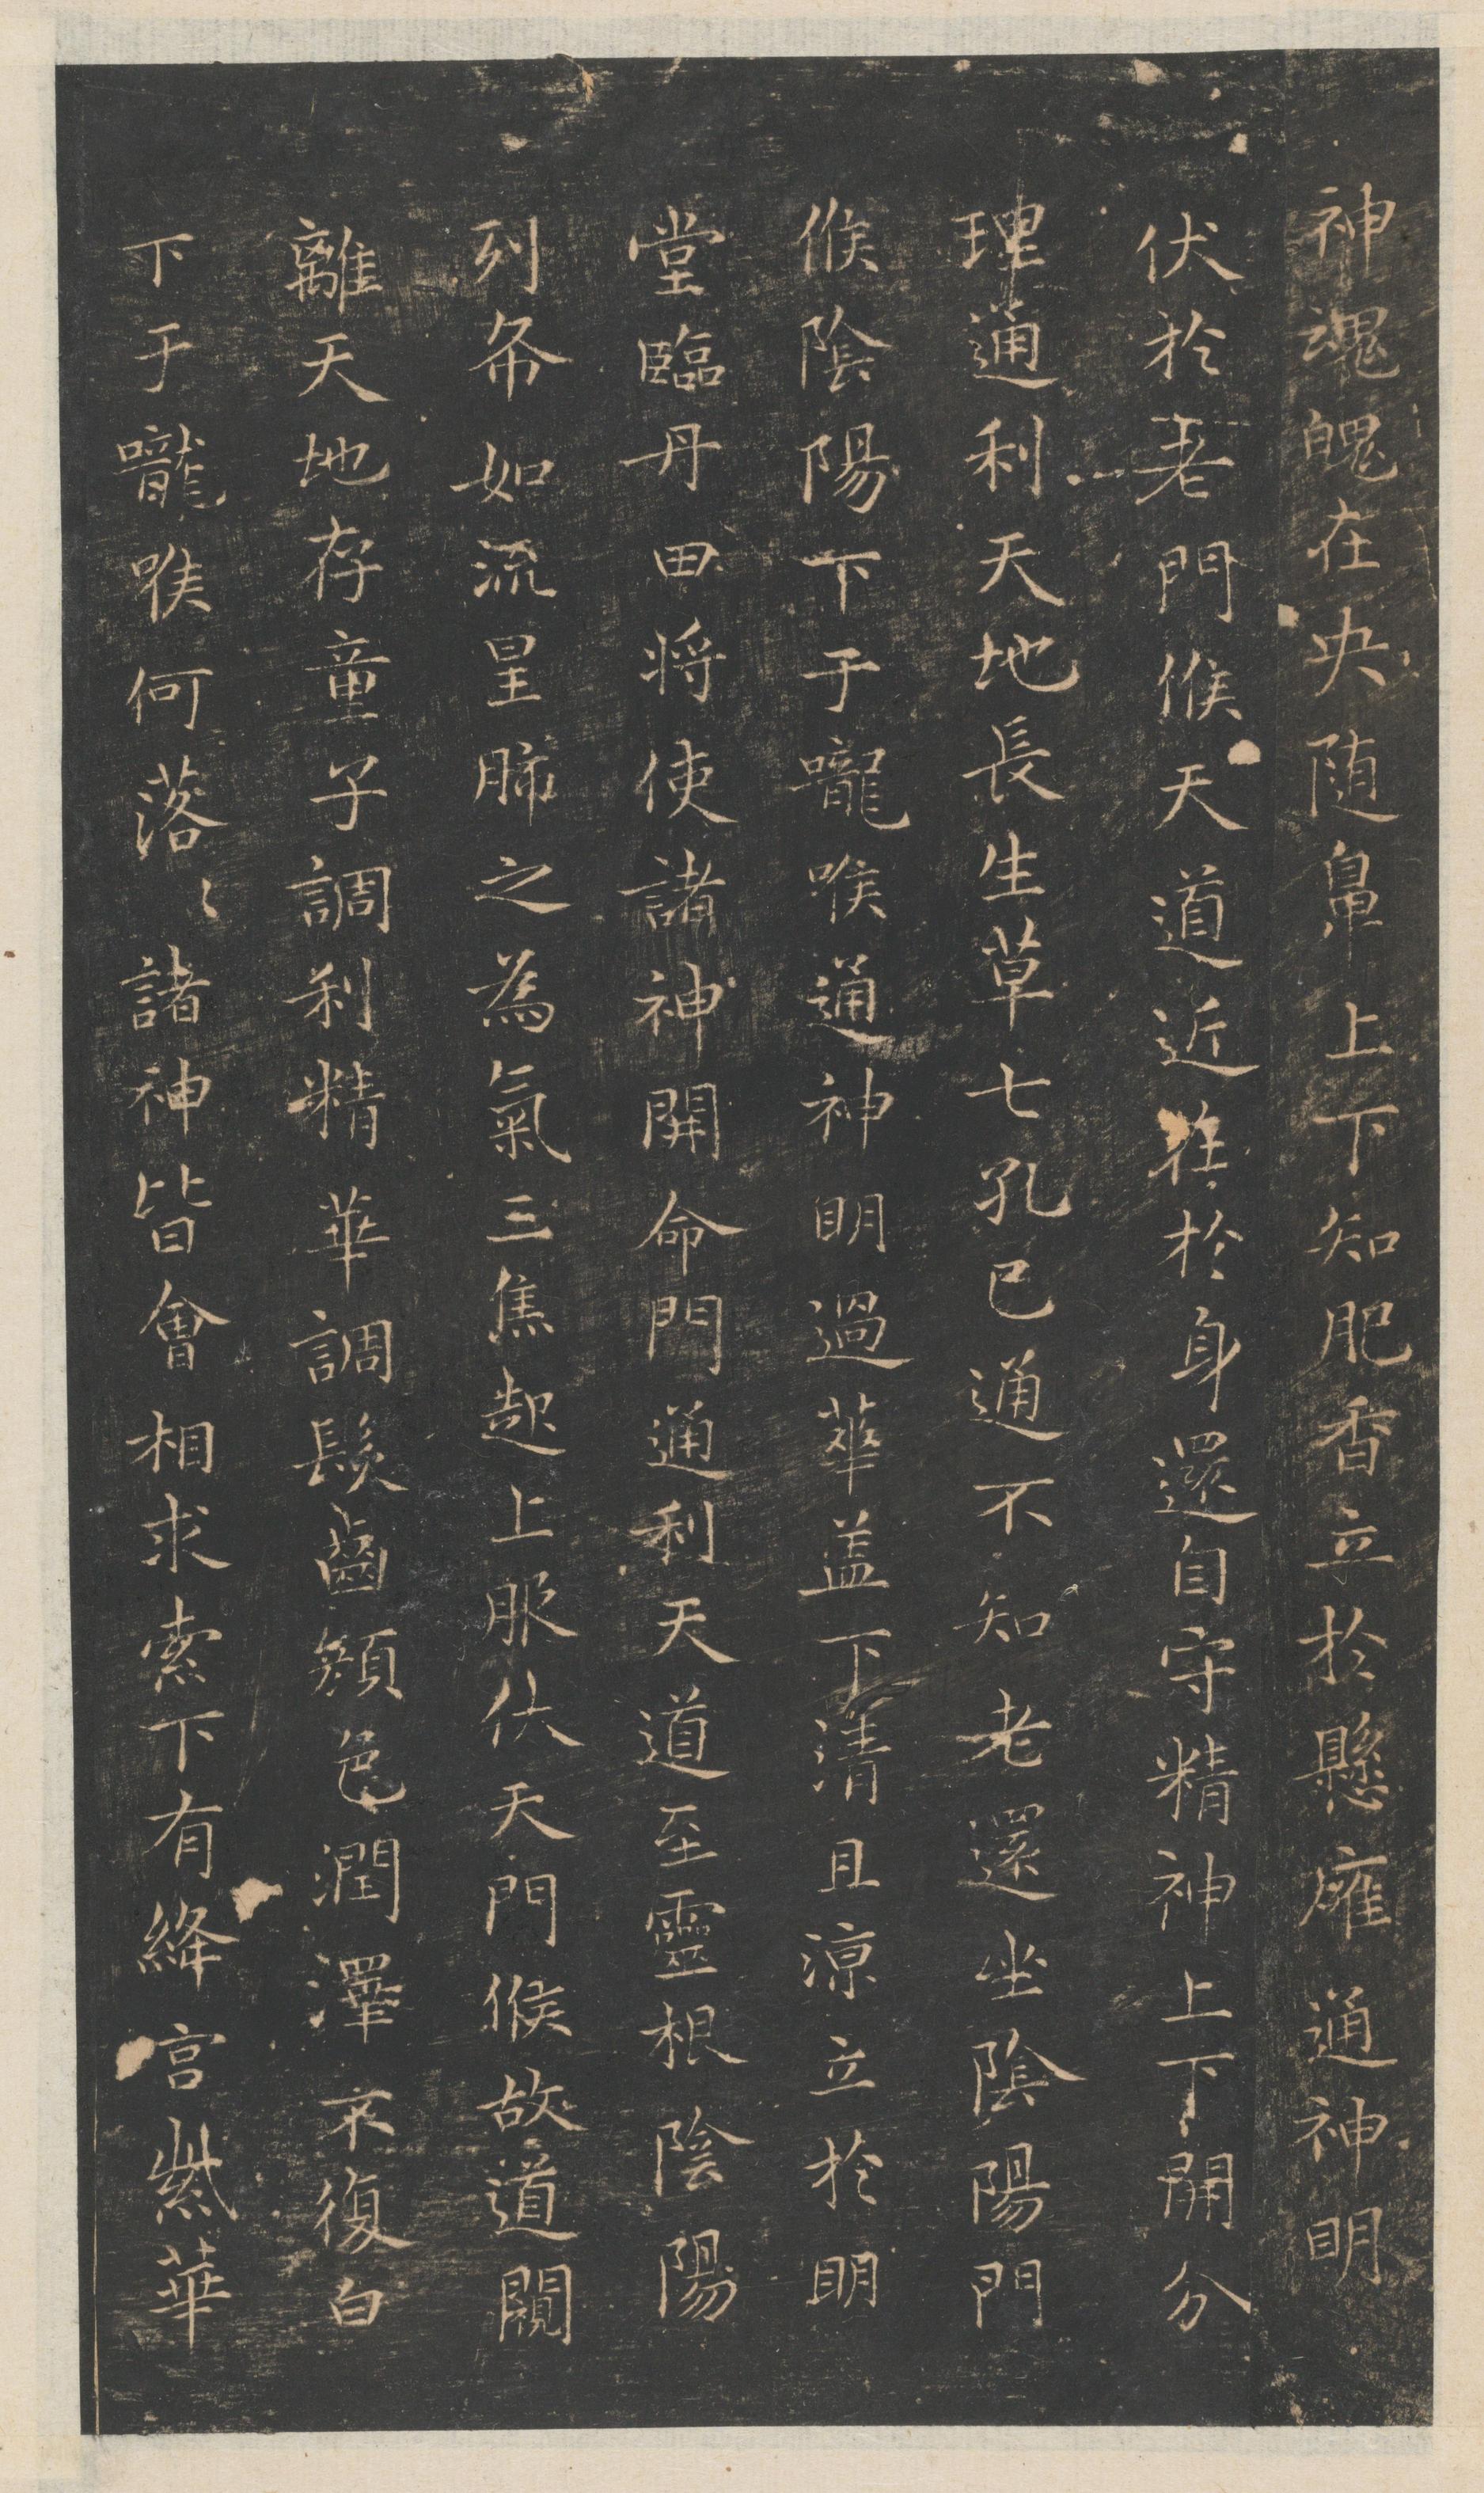 神魂魄在央随鼻上下知肥香立於懸廱通神明
伏於老門候天道近在於身還自守精神上下開分
理通利天地長生草七孔已通不知老還坐陰陽門
候陰陽下于嚨喉通神明過華盖下清且涼立於明
堂臨丹田将使諸神開命門通利天道至靈根陰陽
列布如流星肺之為氣三焦起上服伏天門候故道闚
離天地存童子調利精華調髮齒顏色潤澤不復白
下于嚨喉何落〻諸神皆會相求索下有絳宮紫華